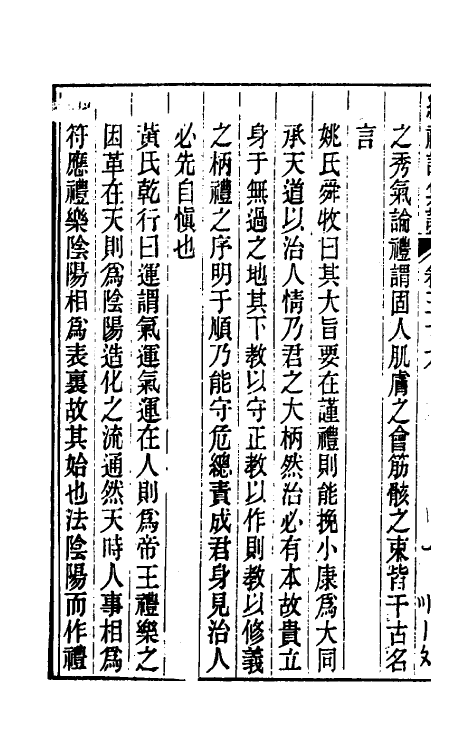 之秀氣論禮謂固人肌膚之會筋骸之束皆千古名
言
姚氏舜牧曰其大旨要在謹禮則能挽小康爲大同
承天道以治人情乃君之大柄然治必有本故貴立
身于無過之地其下教以守正教以作則教以修義
之柄禮之序明于順乃能守危總責成君身見治人
必先自愼也
黃氏乾行曰運謂氣運氣運在人則爲帝王禮樂之
因革在天則爲陰陽造化之流通然天時人事相爲
符應禮樂陰陽相爲表裏故其始也法陰陽而作禮